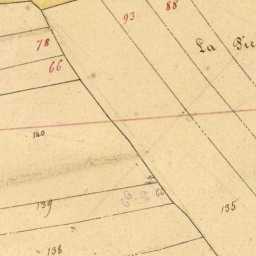 88
93
78
66
La
140
139
135
138